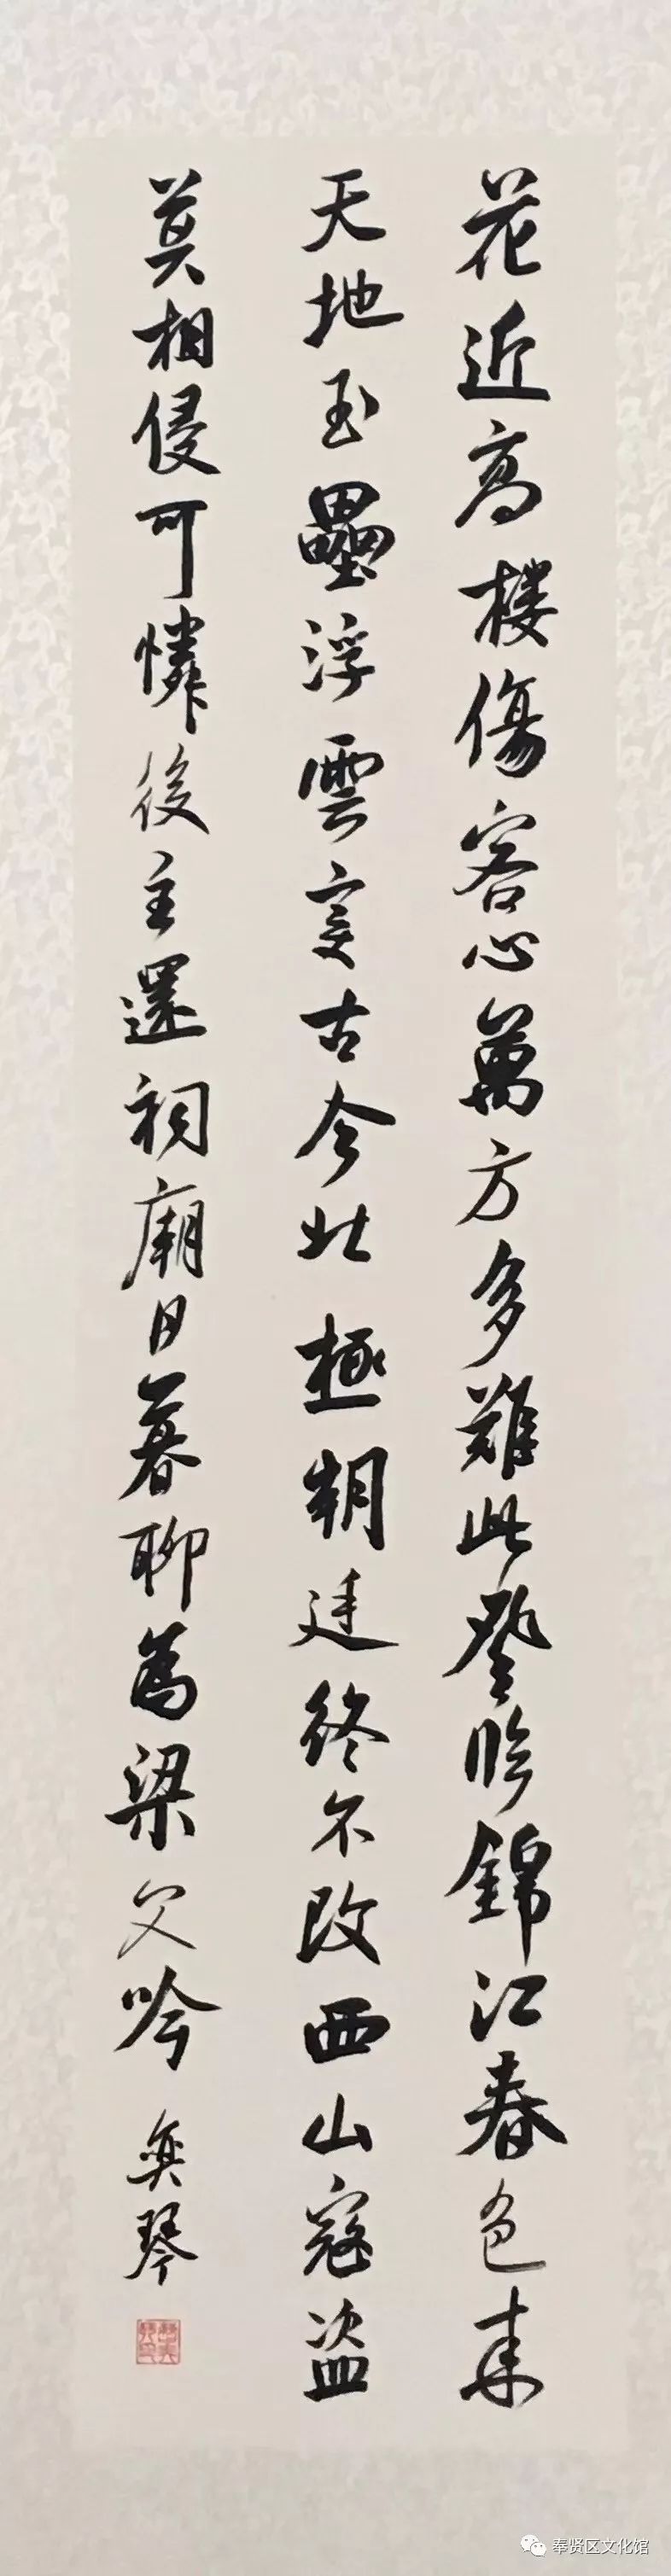 花近高樓傷客心萬方多難此登臨錦江春色来
天地玉壘浮雲变古今北極朝廷终不改西山寇盗
莫相侵可憐後主還祠廟日暮聊為梁父吟 奕琴
奉贤区文化馆